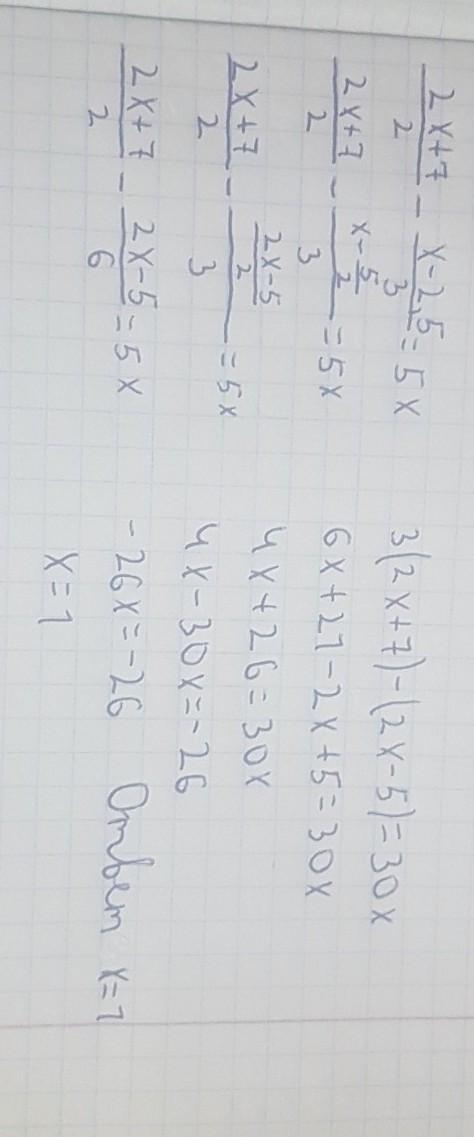 (2x+7)/2 - (x-2,5)/3 = 5x
(2x+7)/2 - (x-5/2)/3 = 5x
(2x+7)/2 - ((2x-5)/2)/3 = 5x
(2x+7)/2 - (2x-5)/6 = 5x
3(2x+7)-(2x-5)=30x
6x+21-2x+5=30x
4x+26=30x
4x-30x=-26
-26x=-26
x=1
Ответ x=1